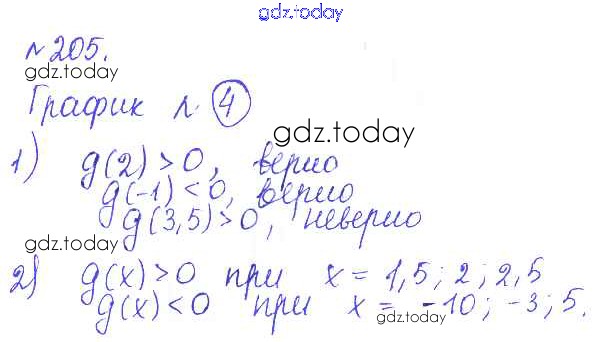 gdz.today
№205.
gdz.today
График п. 4
gdz.today
1) g(2)>0, верно
g(-1)<0, верно
g(3,5)>0, неверно
gdz.today
2) g(x)>0 при x = 1,5; 2; 2,5
g(x)<0 при x = -10; -3; 5.
gdz.today